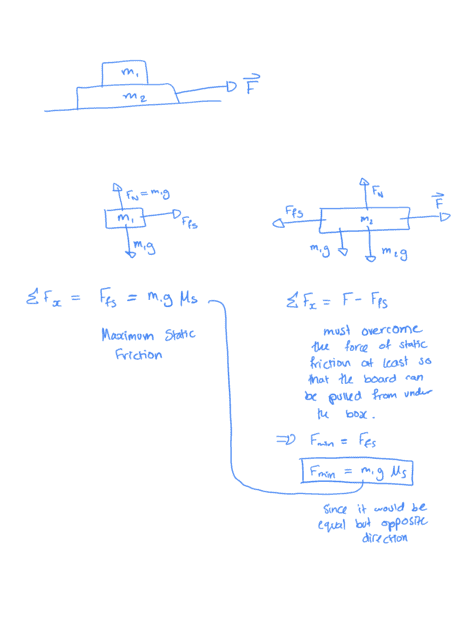 m₁
m₂
F⃗
F_N = m₁g
m₁
F_fs
m₁g
F_N
F_fs
m₂
F⃗
m₁g
m₂g
ΣFₓ = F_fs = m₁g μs
Maximum Static
Friction
ΣFₓ = F - F_fs
must overcome
the force of static
friction at least so
that the board can
be pulled from under
the box.
⇒ F_min = F_fs
F_min = m₁g μs
Since it would be
equal but opposite
direction